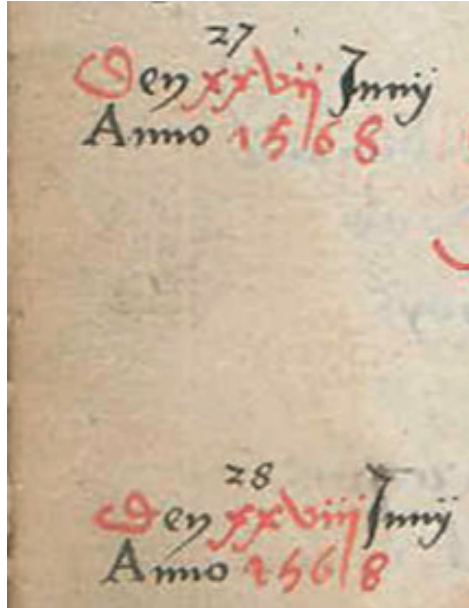 27
Den xxvij Junij
Anno 1568
28
Den xxviij Junij
Anno 1568